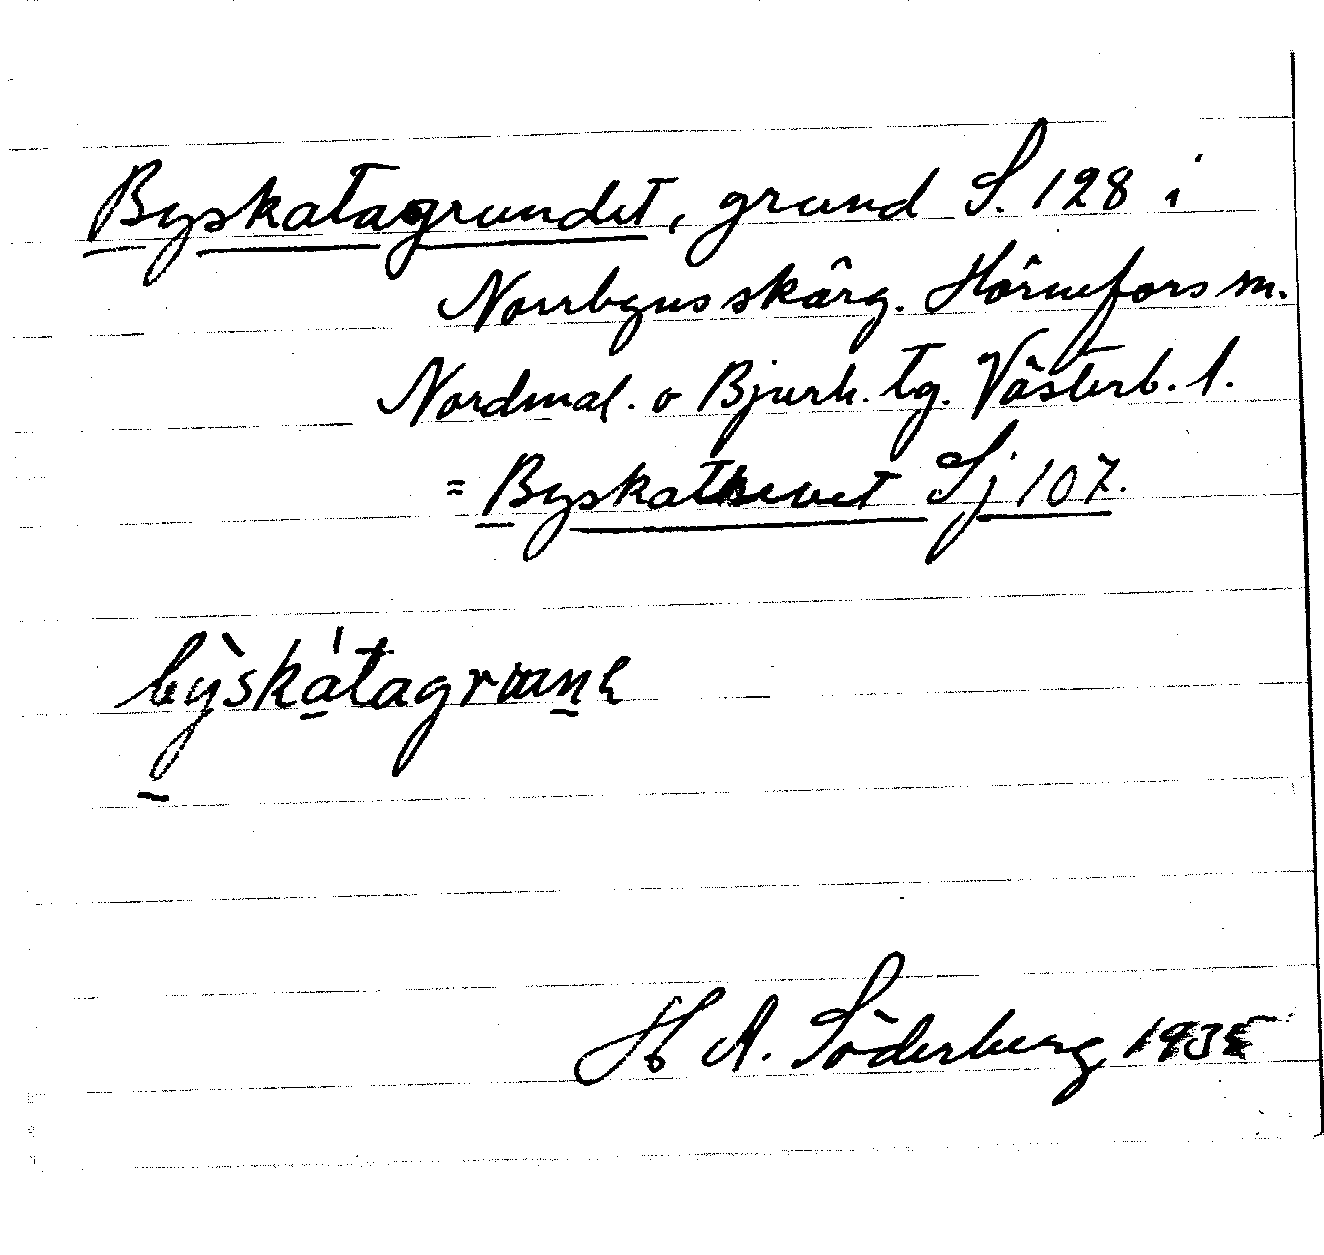 Byskatagrundet, grund S. 128 i
Norrbyns skärg. Hörnefors sn.
Nordmal. o Bjurh. tg. Västerb. l.
= Byskatrevet Sj 107.
H A. Söderberg 1935